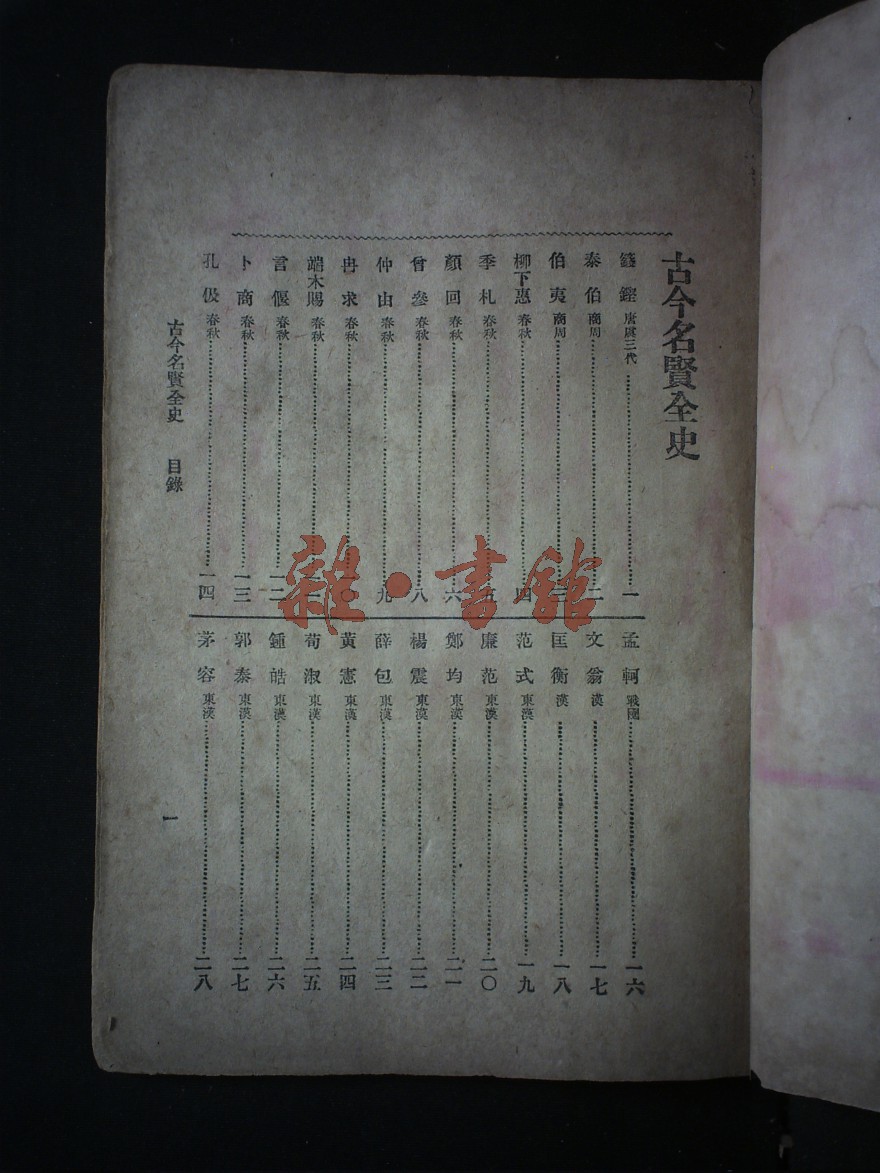 古今名賢全史
籛鏗 唐虞三代 一
泰伯 商周 二
伯夷 商周 三
柳下惠 春秋 四
季札 春秋 五
顏回 春秋 六
曾參 春秋 八
仲由 春秋 九
冉求 春秋 一〇
端木賜 春秋 一一
言偃 春秋 一二
卜商 春秋 一三
孔伋 春秋 一四
孟軻 戰國 一六
文翁 漢 一七
匡衡 漢 一八
范式 東漢 一九
廉范 東漢 二〇
鄭均 東漢 二一
楊震 東漢 二二
薛包 東漢 二三
黃憲 東漢 二四
荀淑 東漢 二五
鍾皓 東漢 二六
郭泰 東漢 二七
茅容 東漢 二八
古今名賢全史 目錄
一
雜·書館